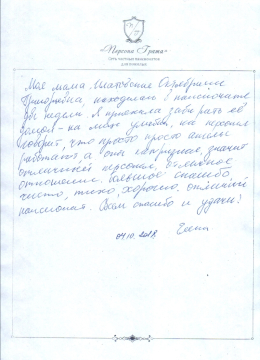 «Первая Грата»
СЕТЬ ЧАСТНЫХ ПАНСИОНАТОВ
ДЛЯ ПОЖИЛЫХ
Моя мама
находилась в пансионате
две недели. Я приехала забирать её
домой - на лице улыбка, на персонал
говорит, что просто просто ангелы
работают, а она капризная, значит
отличный персонал,
отношение. Большое спасибо,
чисто, тихо, хорошо, отличный
пансионат. Всем спасибо и удачи!
04.10.2018 Елена